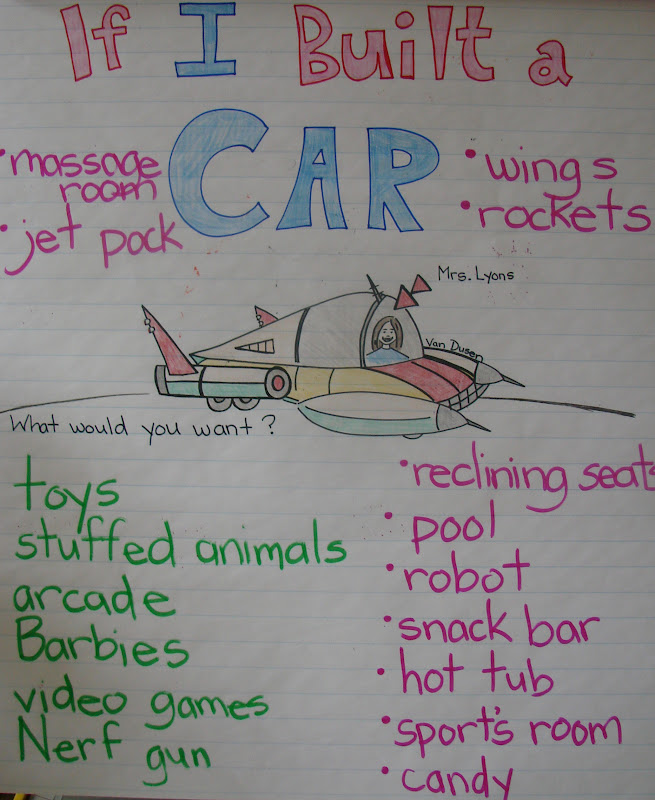 If I Built a
CAR
• massage
room
• jet pack
• wings
• rockets
Mrs. Lyons
Van Dusen
What would you want?
toys
stuffed animals
arcade
Barbies
video games
Nerf gun
• reclining seats
• pool
• robot
• snack bar
• hot tub
• sport's room
• candy